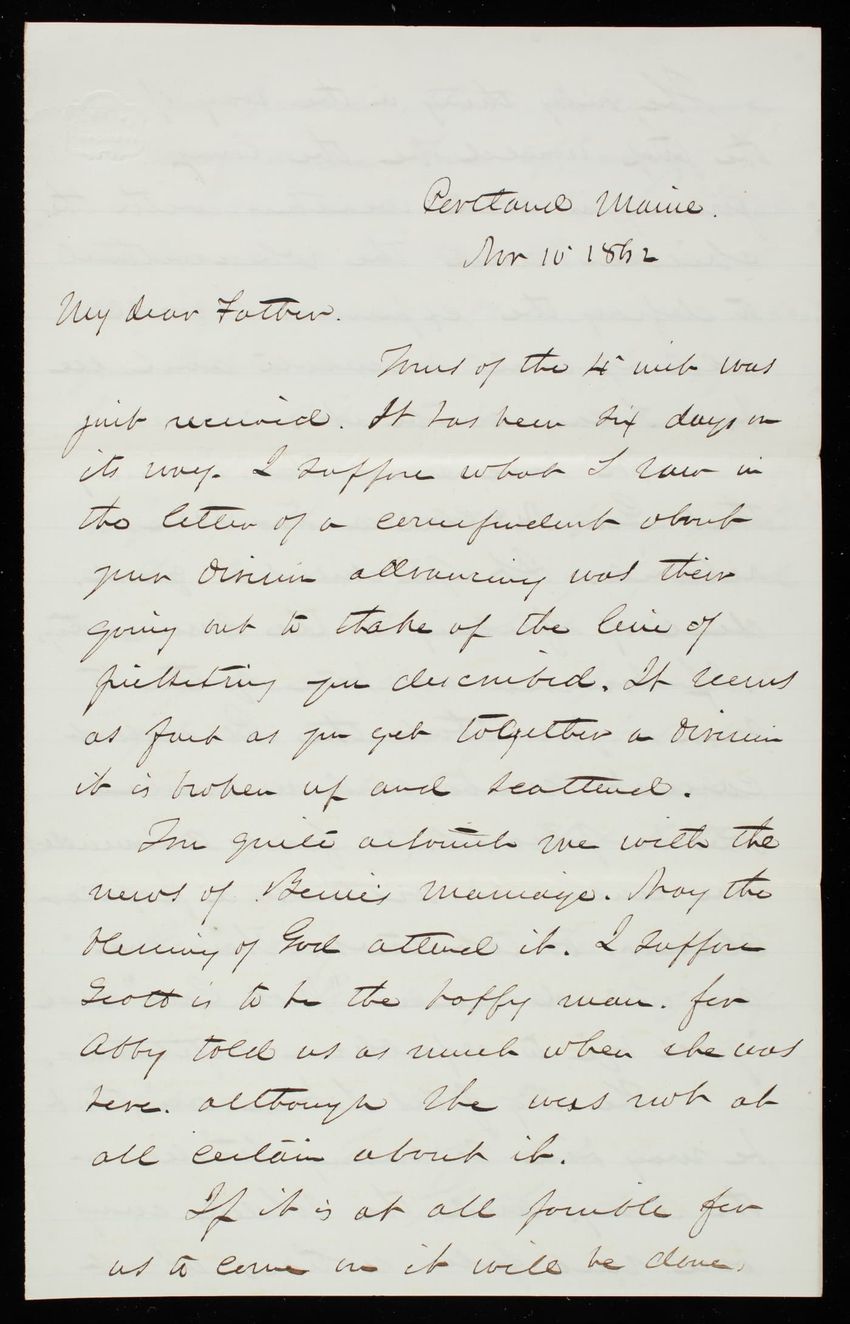 Portland Maine.
Nov 10 1862
My dear Father.
Yours of the 4 inst was
just received. It has been six days on
its way. I suppose what I saw in
the letter of a correspondent about
your division advancing was their
going out to take up the line of
picketing you described. It seems
as fast as you get together a division
it is broken up and scattered.
You quite astonish me with the
news of Bessie's marriage. May the
blessing of God attend it. I suppose
Scott is to be the happy man. for
Abby told us as much when she was
here. although she was not at
all certain about it.
If it is at all possible for
us to come on it will be done.